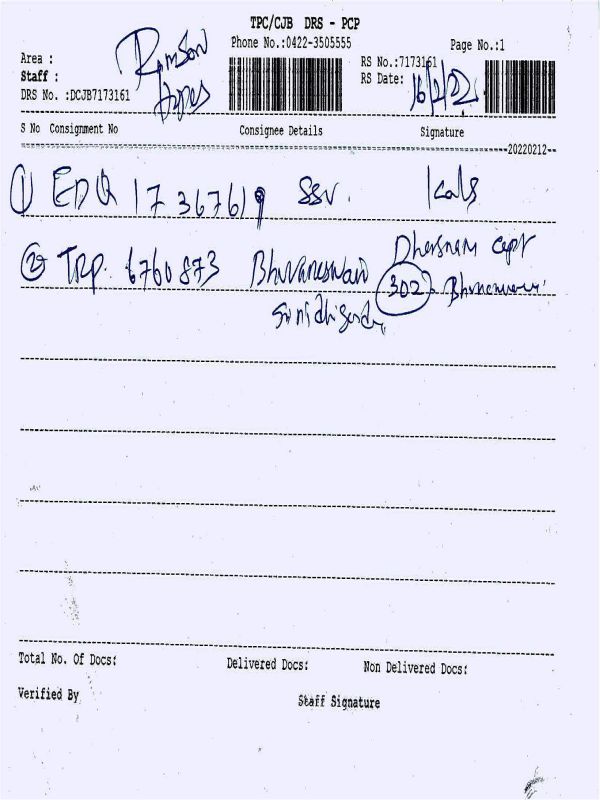 TPC/CJB DRS - PCP
Phone No.:0422-3505555
Page No.:1
Area :
Staff :
DRS No. :DCJB7173161
RS No.:7173161
RS Date: 16/2/22
S No Consignment No Consignee Details Signature
20220212
① EDQ 17367619 SSV.
② TRP. 6760873 Bhuvaneswari
302
Total No. Of Docs: Delivered Docs: Non Delivered Docs:
Verified By Staff Signature